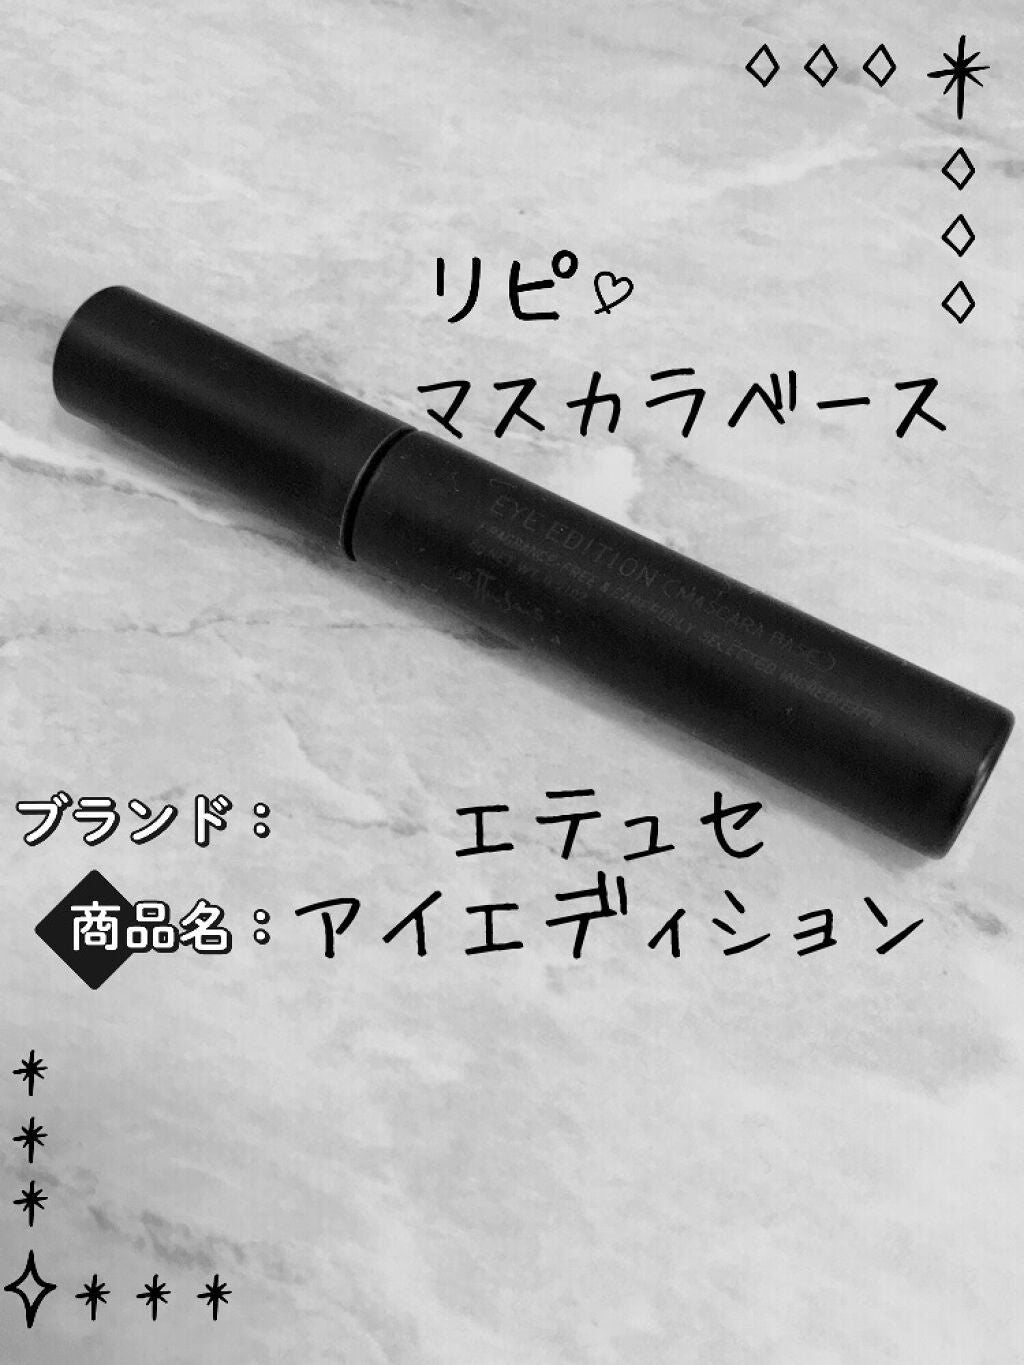 リピ♡
マスカラベース
EYE EDITION (MASCARA BASE)
FRAGRANCE-FREE & CAREFULLY SELECTED INGREDIENTS
ettusais
ブランド： エテュセ
商品名：アイエディション